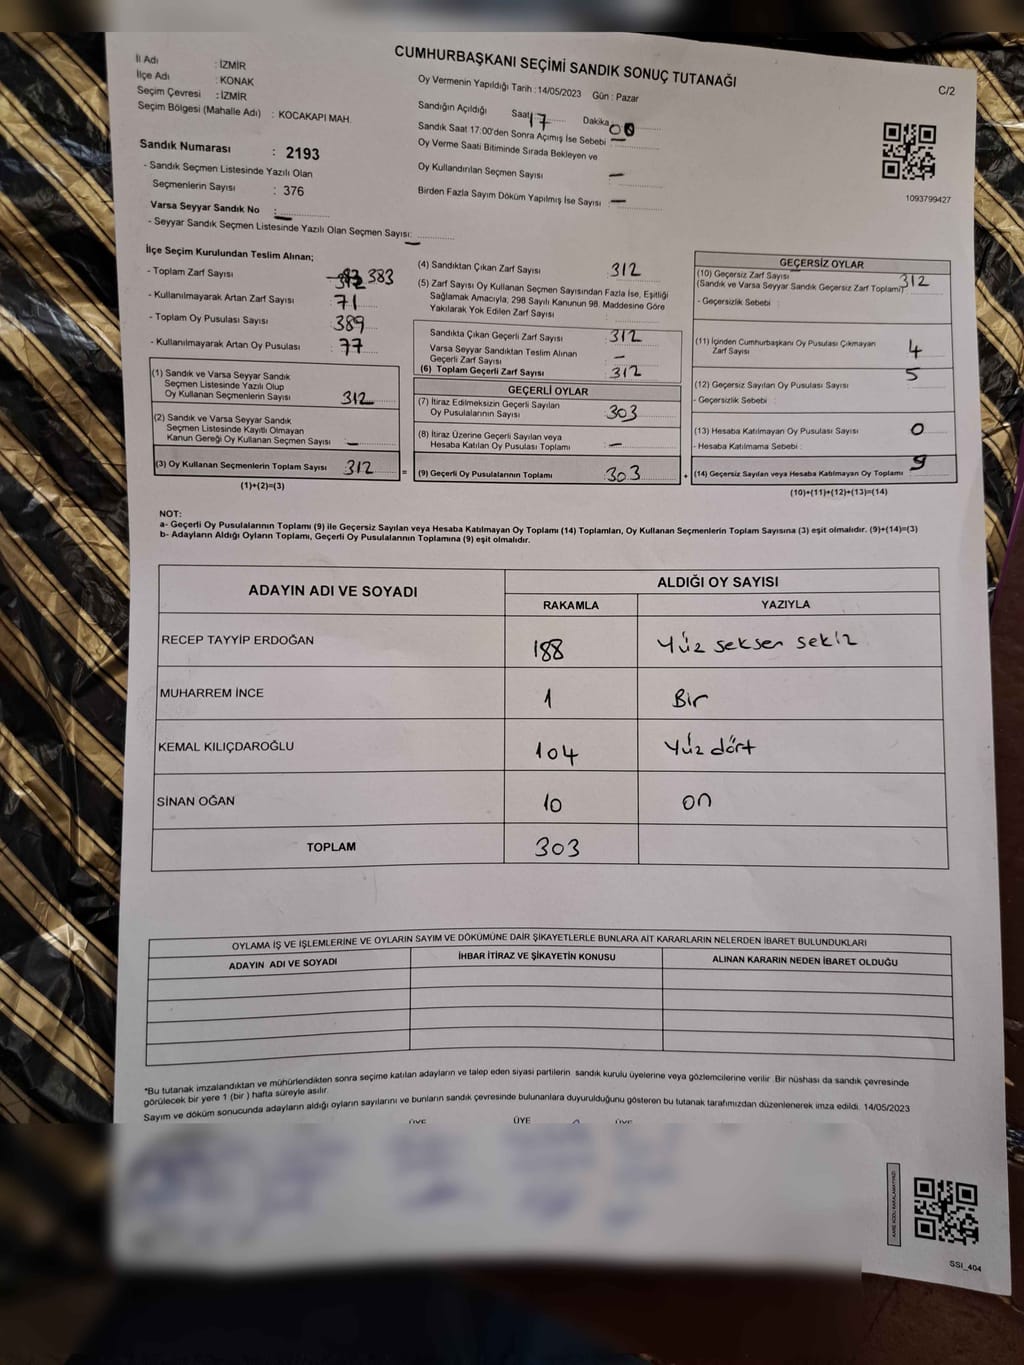 CUMHURBAŞKANI SEÇİMİ SANDIK SONUÇ TUTANAĞI
C/2
İl Adı : İZMİR
İlçe Adı : KONAK
Seçim Çevresi : İZMİR
Seçim Bölgesi (Mahalle Adı) : KOCAKAPI MAH.
Sandık Numarası : 2193
- Sandık Seçmen Listesinde Yazılı Olan
Seçmenlerin Sayısı : 376
Varsa Seyyar Sandık No :
- Seyyar Sandık Seçmen Listesinde Yazılı Olan Seçmen Sayısı:
Oy Vermenin Yapıldığı Tarih : 14/05/2023 Gün : Pazar
Sandığın Açıldığı Saat 17 Dakika 00
Sandık Saat 17:00'den Sonra Açımış İse Sebebi : —
Oy Verme Saati Bitiminde Sırada Bekleyen ve
Oy Kullandırılan Seçmen Sayısı —
Birden Fazla Sayım Döküm Yapılmış İse Sayısı : —
1093799427
İlçe Seçim Kurulundan Teslim Alınan;
- Toplam Zarf Sayısı 383
- Kullanılmayarak Artan Zarf Sayısı 71
- Toplam Oy Pusulası Sayısı 389
- Kullanılmayarak Artan Oy Pusulası 77
(1) Sandık ve Varsa Seyyar Sandık
Seçmen Listesinde Yazılı Olup
Oy Kullanan Seçmenlerin Sayısı 312
(2) Sandık ve Varsa Seyyar Sandık
Seçmen Listesinde Kayıtlı Olmayan
Kanun Gereği Oy Kullanan Seçmen Sayısı —
(3) Oy Kullanan Seçmenlerin Toplam Sayısı 312
(1)+(2)=(3)
(4) Sandıktan Çıkan Zarf Sayısı 312
(5) Zarf Sayısı Oy Kullanan Seçmen Sayısından Fazla İse, Eşitliği
Sağlamak Amacıyla, 298 Sayılı Kanunun 98. Maddesine Göre
Yakılarak Yok Edilen Zarf Sayısı :
Sandıkta Çıkan Geçerli Zarf Sayısı 312
Varsa Seyyar Sandıktan Teslim Alınan
Geçerli Zarf Sayısı —
(6) Toplam Geçerli Zarf Sayısı 312
GEÇERLİ OYLAR
(7) İtiraz Edilmeksizin Geçerli Sayılan
Oy Pusulalarının Sayısı 303
(8) İtiraz Üzerine Geçerli Sayılan veya
Hesaba Katılan Oy Pusulası Toplamı —
= (9) Geçerli Oy Pusulalarının Toplamı 303 +
GEÇERSİZ OYLAR
(10) Geçersiz Zarf Sayısı
(Sandık ve Varsa Seyyar Sandık Geçersiz Zarf Toplamı) 312
- Geçersizlik Sebebi :
(11) İçinden Cumhurbaşkanı Oy Pusulası Çıkmayan
Zarf Sayısı 4
(12) Geçersiz Sayılan Oy Pusulası Sayısı 5
- Geçersizlik Sebebi :
(13) Hesaba Katılmayan Oy Pusulası Sayısı 0
- Hesaba Katılmama Sebebi :
(14) Geçersiz Sayılan veya Hesaba Katılmayan Oy Toplamı 9
(10)+(11)+(12)+(13)=(14)
NOT:
a- Geçerli Oy Pusulalarının Toplamı (9) ile Geçersiz Sayılan veya Hesaba Katılmayan Oy Toplamı (14) Toplamları, Oy Kullanan Seçmenlerin Toplam Sayısına (3) eşit olmalıdır. (9)+(14)=(3)
b- Adayların Aldığı Oyların Toplamı, Geçerli Oy Pusulalarının Toplamına (9) eşit olmalıdır.
ADAYIN ADI VE SOYADI ALDIĞI OY SAYISI
RAKAMLA YAZIYLA
RECEP TAYYİP ERDOĞAN 188 Yüz seksen sekiz
MUHARREM İNCE 1 Bir
KEMAL KILIÇDAROĞLU 104 Yüz dört
SİNAN OĞAN 10 on
TOPLAM 303
OYLAMA İŞ VE İŞLEMLERİNE VE OYLARIN SAYIM VE DÖKÜMÜNE DAİR ŞİKAYETLERLE BUNLARA AİT KARARLARIN NELERDEN İBARET BULUNDUKLARI
ADAYIN ADI VE SOYADI İHBAR İTİRAZ VE ŞİKAYETİN KONUSU ALINAN KARARIN NEDEN İBARET OLDUĞU
*Bu tutanak imzalandıktan ve mühürlendikten sonra seçime katılan adayların ve talep eden siyasi partilerin sandık kurulu üyelerine veya gözlemcilerine verilir .Bir nüshası da sandık çevresinde
görülecek bir yere 1 (bir ) hafta süreyle asılır.
Sayım ve döküm sonucunda adayların aldığı oyların sayılarını ve bunların sandık çevresinde bulunanlara duyurulduğunu gösteren bu tutanak tarafımızdan düzenlenerek imza edildi. 14/05/2023
ÜYE ÜYE ÜYE
SSI_404